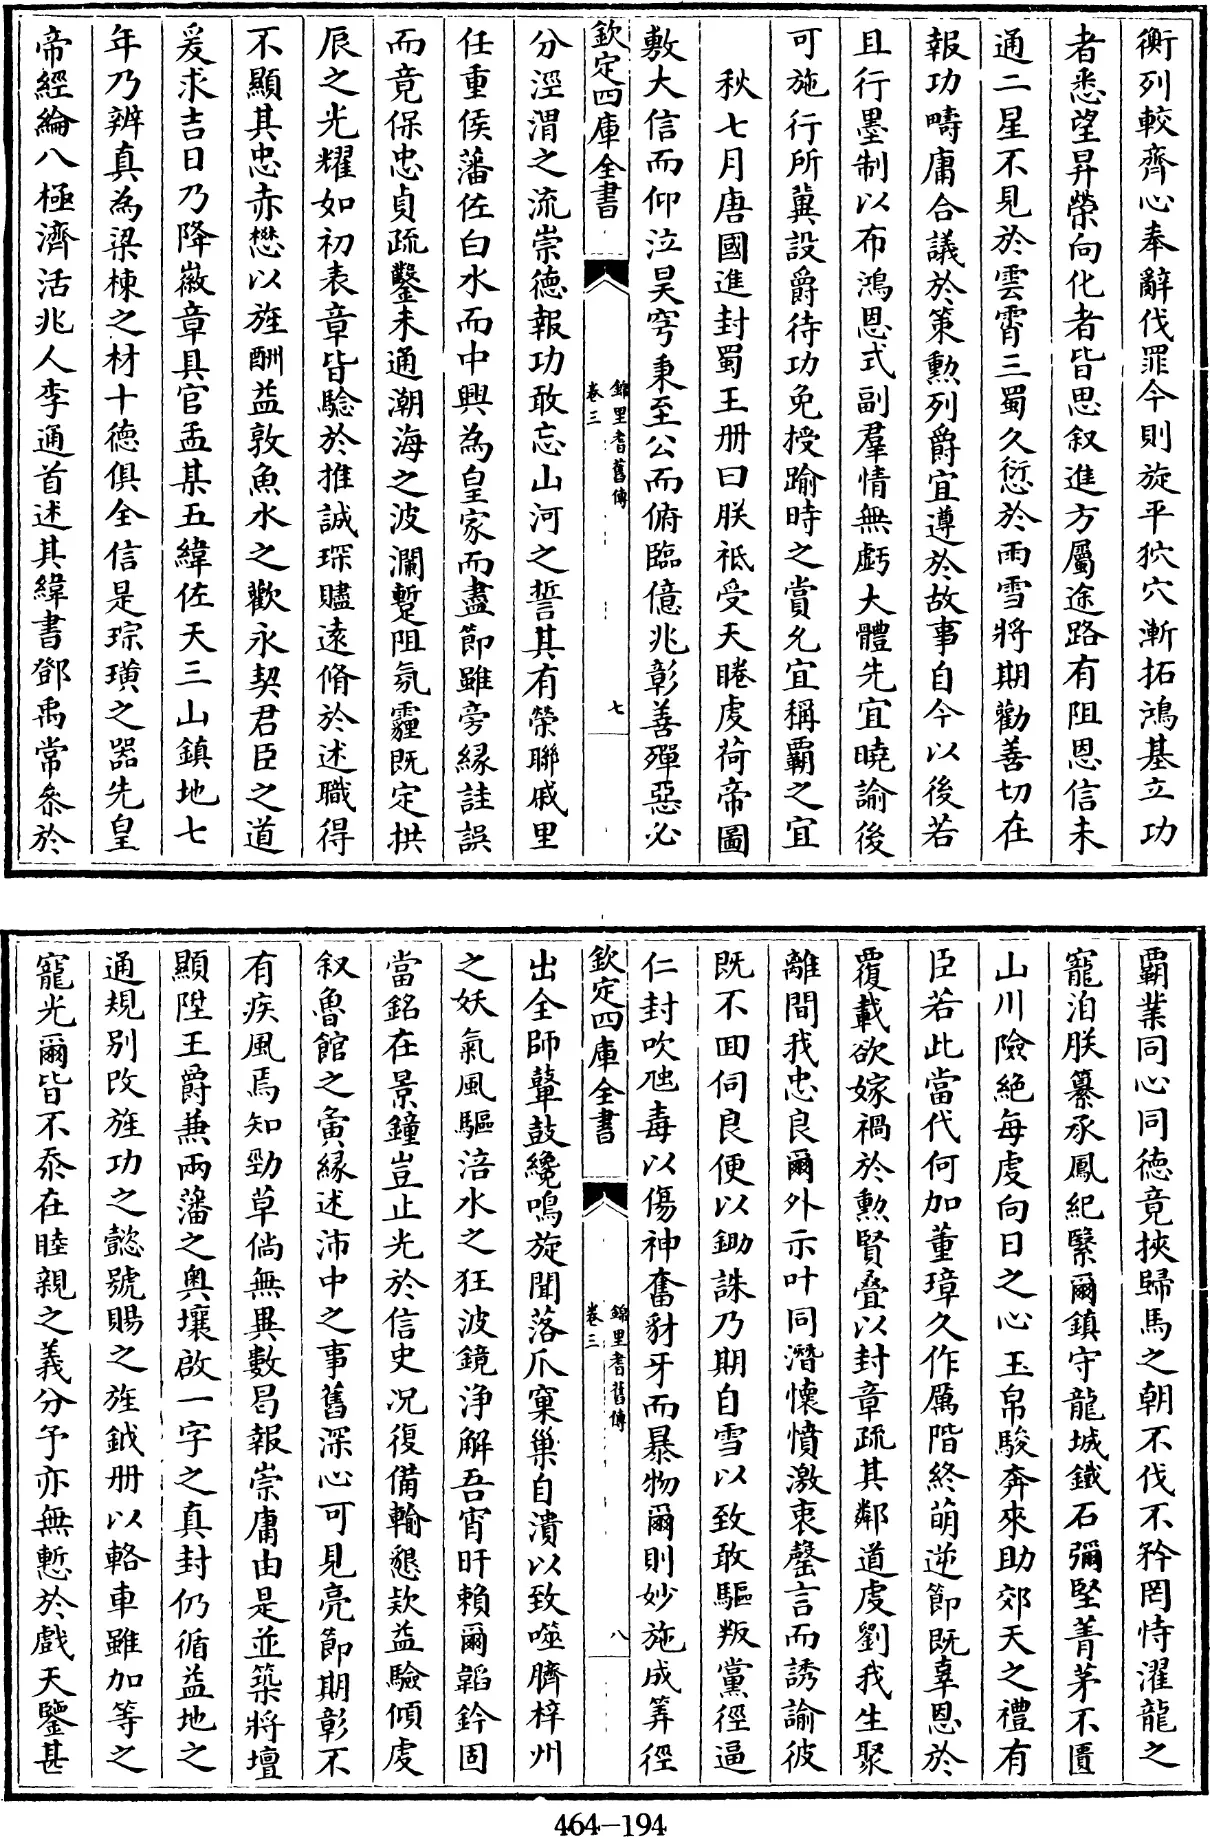 衡列較齊心奉辭伐罪今則旋平狄穴漸拓鴻基立功
者悉望昇榮向化者皆思叙進方屬途路有阻恩信未
通二星不見於雲霄三蜀久愆於雨雪將期勸善切在
報功疇庸合議於策勲列爵宜遵於故事自今以後若
且行墨制以布鴻恩式副羣情無虧大體先宜曉諭後
可施行所兾設爵待功免授踰時之賞允宜稱覇之宜
秋七月唐國進封蜀王册曰朕祗受天睠虔荷帝圖
敷大信而仰泣昊穹秉至公而俯臨億兆彰善殫惡必
欽定四庫全書
錦里耆舊傳
卷三
七
分涇渭之流崇徳報功敢忘山河之誓其有榮聯戚里
任重侯藩佐白水而中興為皇家而盡節雖旁縁詿誤
而竟保忠貞疏鑿未通潮海之波瀾蹔阻氛霾既定拱
辰之光耀如初表章皆驗於推誠琛贐逺脩於述職得
不顯其忠赤懋以旌酬益敦魚水之歡永契君臣之道
爰求吉日乃降徽章具官孟某五緯佐天三山鎮地七
年乃辨真為梁棟之材十徳俱全信是琮璜之器先皇
帝經綸八極濟活兆人李通首述其緯書鄧禹常叅於
覇業同心同徳竟挾歸馬之朝不伐不矜罔恃濯龍之
寵洎朕纂承鳳紀繄爾鎮守龍城鐵石彌堅菁茅不匱
山川險絶每虔向日之心玉帛駿奔來助郊天之禮有
臣若此當代何加董璋久作厲階終萌逆節既辜恩於
覆載欲嫁禍於勲賢疊以封章疏其鄰道虔劉我生聚
離間我忠良爾外示叶同潛懷憤激衷罄言而誘諭彼
既不囬伺良便以鋤誅乃期自雪以致敢驅叛黨徑逼
仁封吹虺毒以傷神奮豺牙而暴物爾則妙施成筭徑
欽定四庫全書
錦里耆舊傳
卷三
八
出全師鼙鼓纔鳴旋聞落爪窠巢自潰以致噬臍梓州
之妖氣風驅涪水之狂波鏡浄解吾宵旰賴爾韜鈐固
當銘在景鐘豈止光於信史况復備輸懇欵益驗傾虔
叙魯館之夤縁述沛中之事舊深心可見亮節期彰不
有疾風焉知勁草倘無異數曷報崇庸由是並築將壇
顯陞王爵兼兩藩之奥壤啟一字之真封仍循益地之
通規别改旌功之懿號賜之旌鉞册以輅車雖加等之
寵光爾皆不忝在睦親之義分予亦無慙於戲天鑒甚
464-194